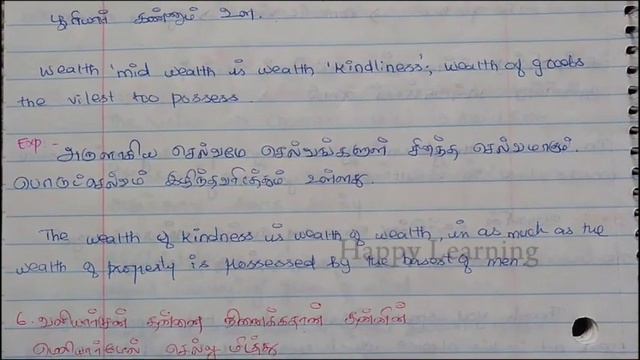 பூரியார் கண்ணும் உள.
Wealth 'mid wealth is wealth 'kindliness'; wealth of goods
the vilest too possess.
Exp:- அருளாகிய செல்வமே செல்வங்களுள் சிறந்த செல்வமாகும்.
பொருட்செல்வம் இழிந்தவரிடத்தும் உள்ளது.
The wealth of kindness is wealth of wealth, in as much as the
wealth of property is possessed by the basest of men
Happy Learning
6. வலியார்முன் தன்னை நினைக்கதான் தன்னின்
மெலியார்மேல் செல்லு மிடத்து